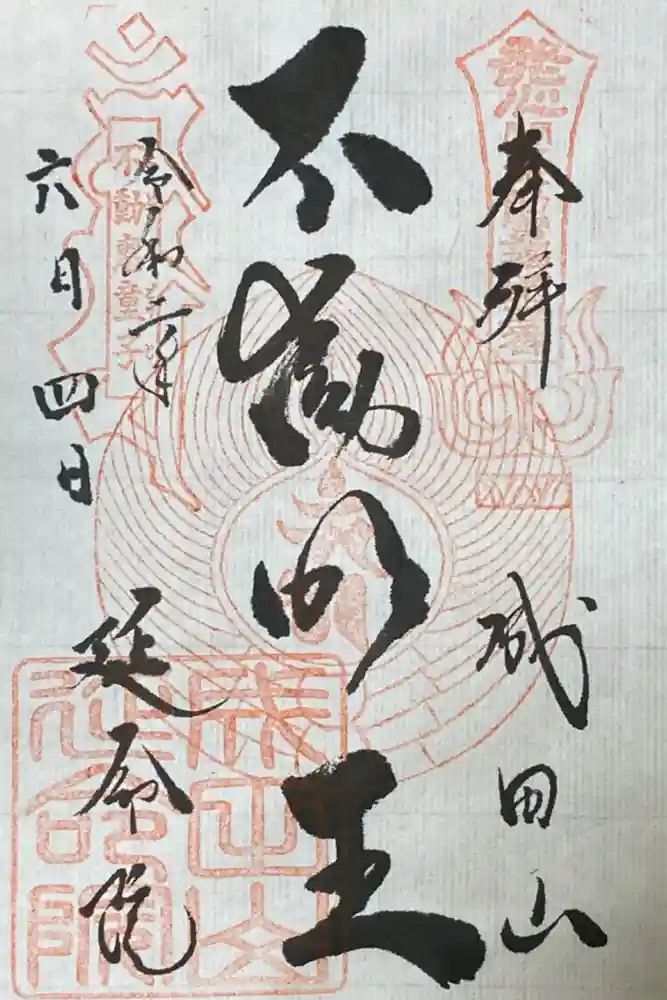 奉拝
成田山
不動明王
令和二年
六月四日
延命院
不動教童子
成田山
延命院